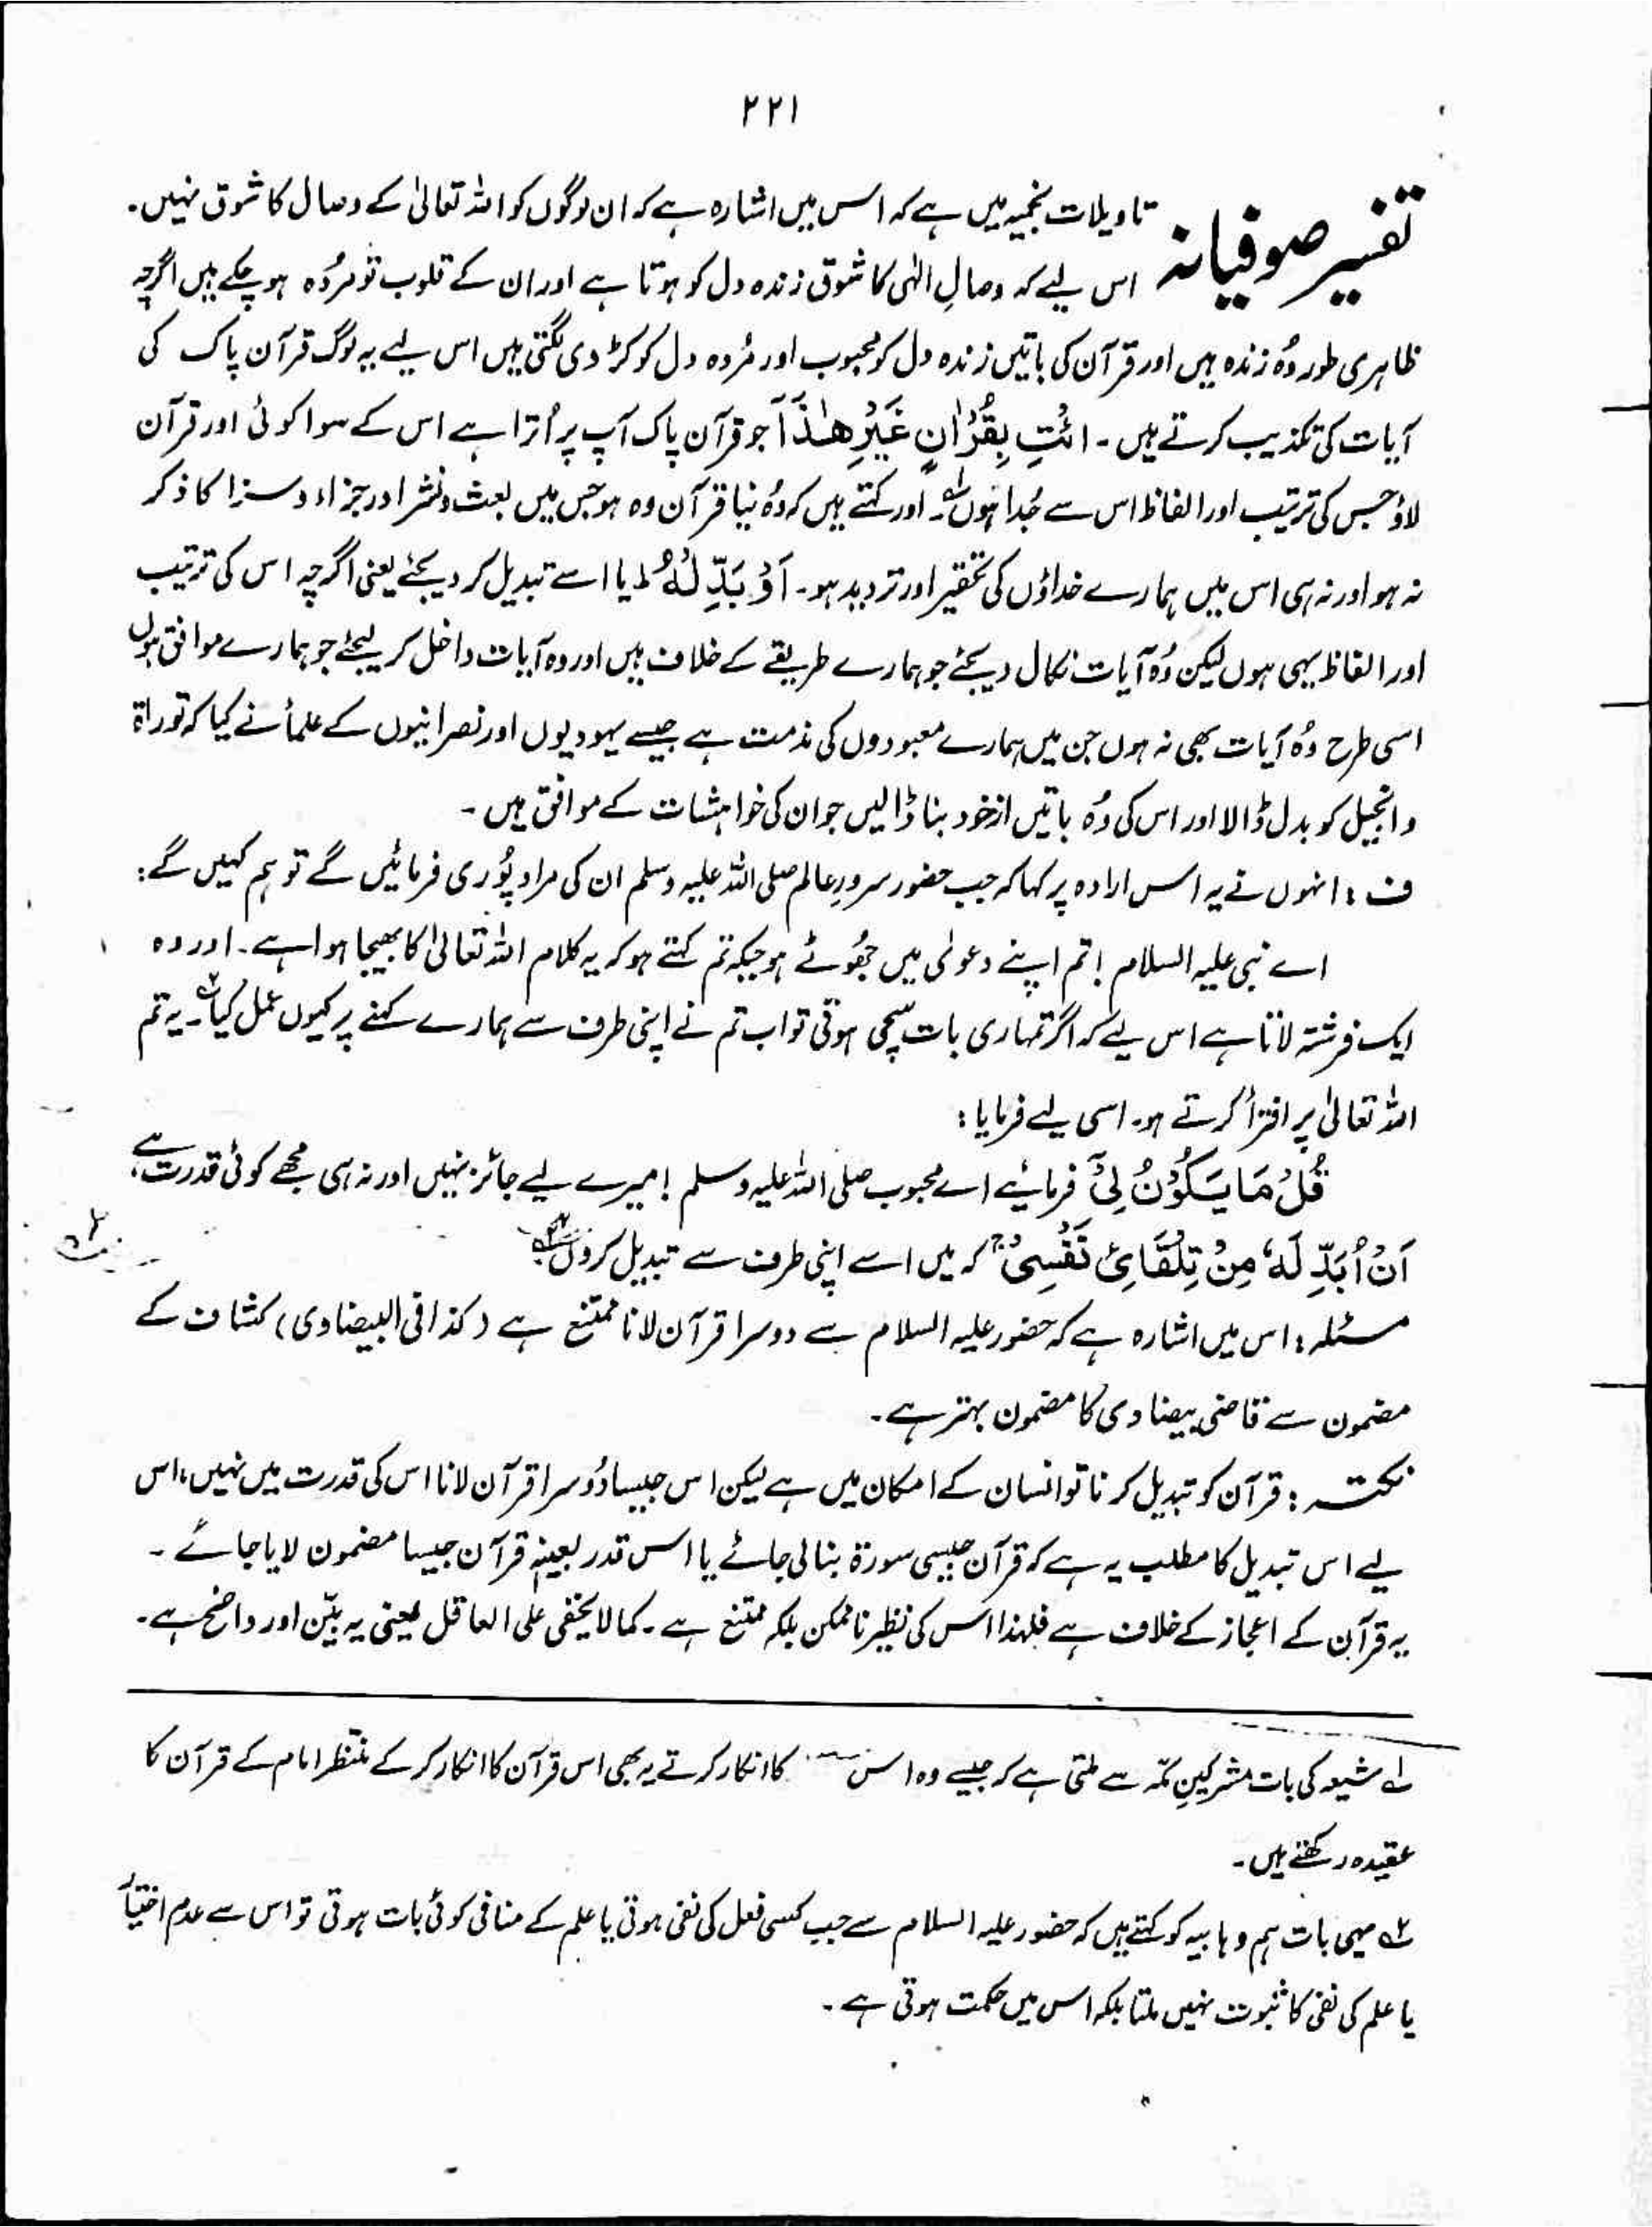 ۲۲۱
تفسیر صوفیانہ
تاویلات نجمیہ میں ہے کہ اس میں اشارہ ہے کہ ان لوگوں کو اللہ تعالیٰ کے وصال کا شوق نہیں۔
اس لیے کہ وصالِ الٰہی کا شوق زندہ دل کو ہوتا ہے اور ان کے قلوب تو مُردہ ہو چکے ہیں اگرچہ
ظاہری طور وُہ زندہ ہیں اور قرآن کی باتیں زندہ دل کو محبوب اور مُردہ دل کو کڑوی لگتی ہیں اس لیے یہ لوگ قرآن پاک کی
آیات کی تکذیب کرتے ہیں۔ ائْتِ بِقُرْاٰنٍ غَيْرِ هٰذَآ جو قرآن پاک آپ پر اُترا ہے اس کے سوا کوئی اور قرآن
لاؤ جس کی ترتیب اور الفاظ اس سے جُدا ہوں لہ۔ اور کہتے ہیں کہ وُہ نیا قرآن وہ ہو جس میں بعث و نشر اور جزاء و سزا کا ذکر
نہ ہو اور نہ ہی اس میں ہمارے خداؤں کی تحقیر اور تردید ہو۔ اَوْ بَدِّلْهُ ط یا اسے تبدیل کر دیجئے یعنی اگرچہ اس کی ترتیب
اور الفاظ یہی ہوں لیکن وُہ آیات نکال دیجئے جو ہمارے طریقے کے خلاف ہیں اور وہ آیات داخل کر لیجئے جو ہمارے موافق ہوں
اسی طرح وُہ آیات بھی نہ ہوں جن میں ہمارے معبودوں کی مذمت ہے جیسے یہودیوں اور نصرانیوں کے علمأ نے کیا کہ توراۃ
و انجیل کو بدل ڈالا اور اس کی وُہ باتیں ازخود بنا ڈالیں جو ان کی خواہشات کے موافق ہیں۔
ف : انہوں نے یہ اس ارادہ پر کہا کہ جب حضور سرورِ عالم صلی اللہ علیہ وسلم ان کی مراد پُوری فرمائیں گے تو ہم کہیں گے :
اے نبی علیہ السلام ! تم اپنے دعوٰی میں جُھوٹے ہو جبکہ تم کہتے ہو کہ یہ کلام اللہ تعالیٰ کا بھیجا ہوا ہے۔ اور وہ
ایک فرشتہ لاتا ہے اس لیے کہ اگر تمہاری بات سچی ہوتی تو اب تم نے اپنی طرف سے ہمارے کہنے پر کیوں عمل کیا ۲۔ یہ تم
اللہ تعالیٰ پر افترأ کرتے ہو۔ اسی لیے فرمایا :
قُلْ مَا يَكُوْنُ لِيْٓ فرمائیے اے محبوب صلی اللہ علیہ وسلم ! میرے لیے جائز نہیں اور نہ ہی مجھے کوئی قدرت ہے
اَنْ اُبَدِّلَهٗ مِنْ تِلْقَائِ نَفْسِيْ ج کہ میں اسے اپنی طرف سے تبدیل کروں
مسئلہ : اس میں اشارہ ہے کہ حضور علیہ السلام سے دوسرا قرآن لانا ممتنع ہے (کذا فی البیضاوی) کشاف کے
مضمون سے قاضی بیضاوی کا مضمون بہتر ہے۔
نکتہ : قرآن کو تبدیل کرنا تو انسان کے امکان میں ہے لیکن اس جیسا دُوسرا قرآن لانا اس کی قدرت میں نہیں، اس
لیے اس تبدیل کا مطلب یہ ہے کہ قرآن جیسی سورۃ بنالی جائے یا اس قدر بعینہٖ قرآن جیسا مضمون لایا جائے۔
یہ قرآن کے اعجاز کے خلاف ہے فلہٰذا اس کی نظیر ناممکن بلکہ ممتنع ہے۔ کما لا یخفی علی العاقل یعنی یہ بیّن اور واضح ہے۔
لہ شیعہ کی بات مشرکینِ مکّہ سے ملتی ہے کہ جیسے وہ اس کا انکار کرتے یہ بھی اس قرآن کا انکار کر کے منتظر امام کے قرآن کا
عقیدہ رکھتے ہیں۔
۲ یہی بات ہم وہابیہ کو کہتے ہیں کہ حضور علیہ السلام سے جب کسی فعل کی نفی ہوتی یا علم کے منافی کوئی بات ہوتی تو اس سے عدم اختیار
یا علم کی نفی کا ثبوت نہیں ملتا بلکہ اس میں حکمت ہوتی ہے۔